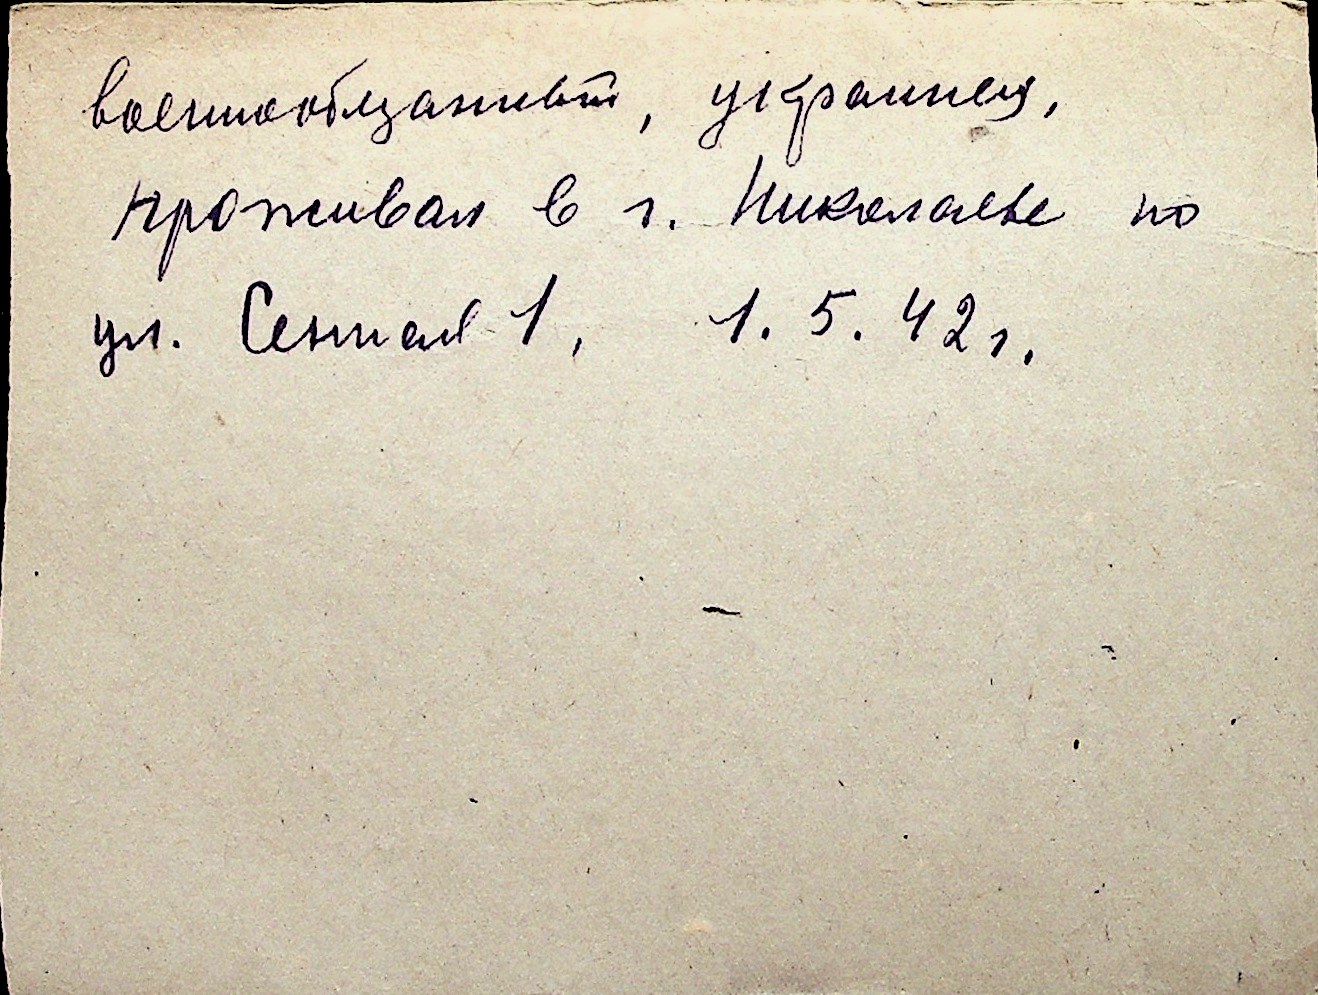 военнообязанный, украинец,
проживал в г. Николаеве по
ул. Сенная 1, 1.5.42 г.